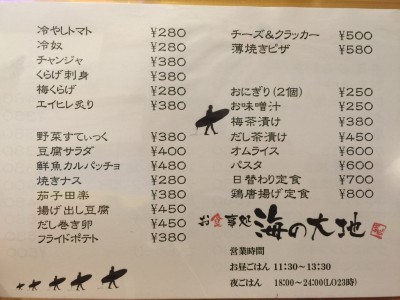 冷やしトマト ¥280
冷奴 ¥280
チャンジャ ¥380
くらげ刺身 ¥380
梅くらげ ¥280
エイヒレ炙り ¥380
野菜すてぃっく ¥380
豆腐サラダ ¥400
鮮魚カルパッチョ ¥480
焼きナス ¥280
茄子田楽 ¥380
揚げ出し豆腐 ¥450
だし巻き卵 ¥450
フライドポテト ¥380
チーズ&クラッカー ¥500
薄焼きピザ ¥580
おにぎり(2個) ¥250
お味噌汁 ¥250
梅茶漬け ¥380
だし茶漬け ¥450
オムライス ¥600
パスタ ¥600
日替わり定食 ¥700
鶏唐揚げ定食 ¥800
お食事処 海の大地
営業時間
お昼ごはん 11:30~13:30
夜ごはん 18:00~24:00(LO23時)